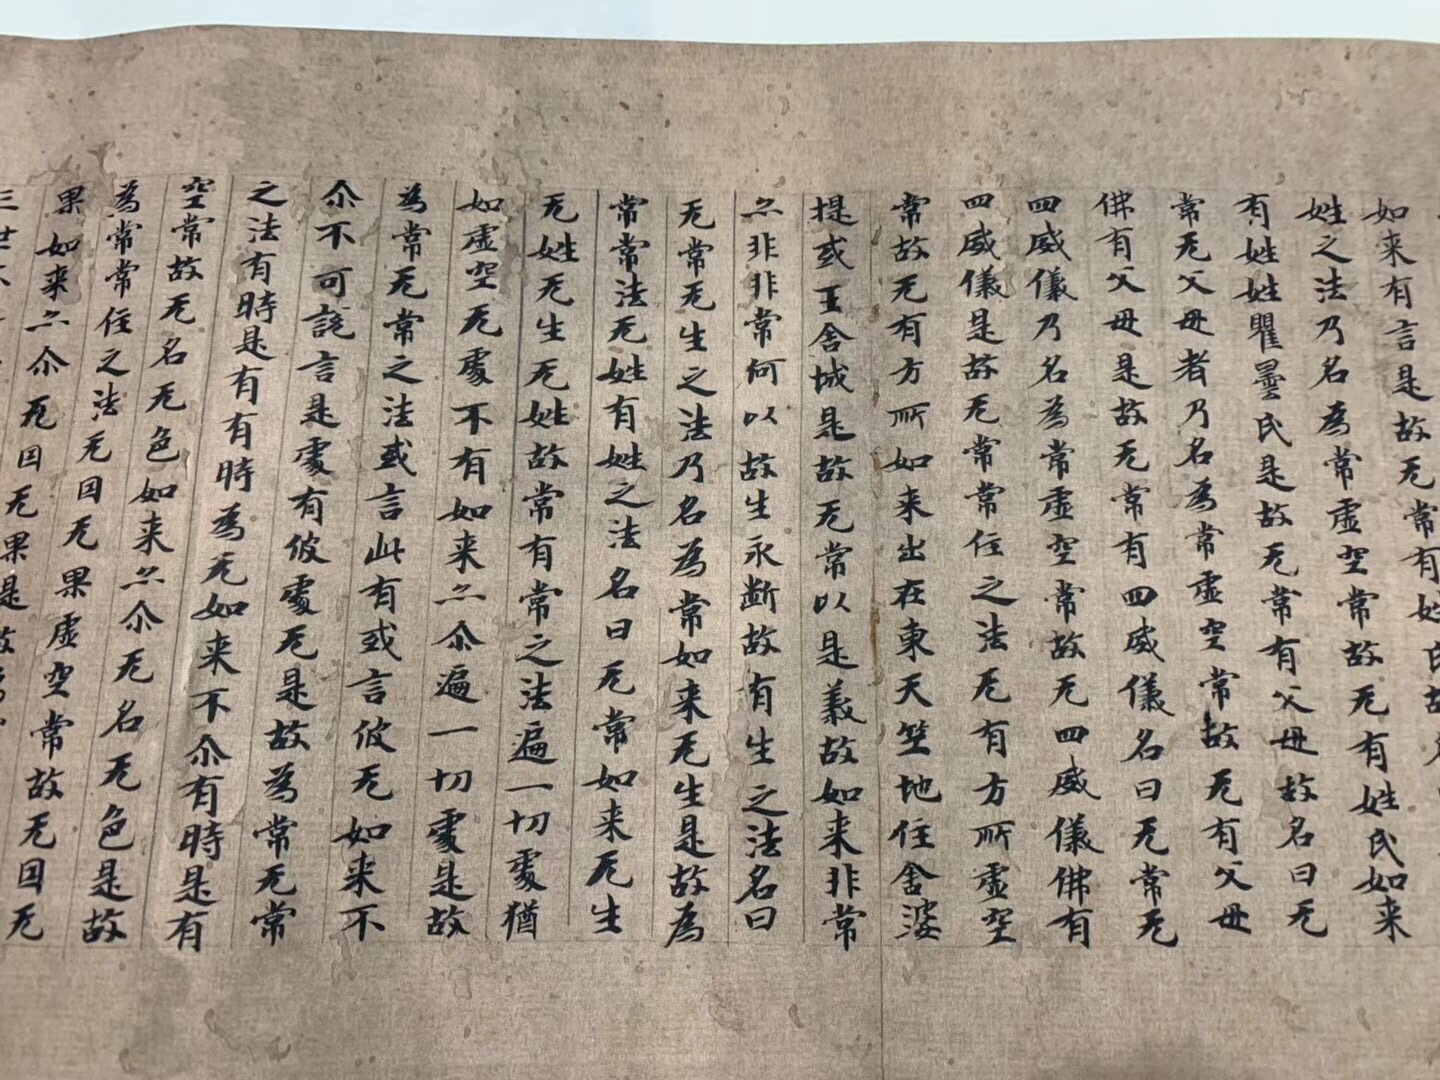 如来有言是故无常有姓氏故名
姓之法乃名為常虛空常故无有姓氏如来
有姓姓瞿曇氏是故无常有父母故名曰无
常无父母者乃名為常虛空常故无有父母
佛有父母是故无常有四威儀名曰无常无
四威儀乃名為常虛空常故无四威儀佛有
四威儀是故无常常住之法无有方所虛空
常故无有方所如来出在東天竺地住舍婆
提或王舍城是故无常以是義故如来非常
亦非非常何以故生永斷故有生之法名曰
无常无生之法乃名為常如来无生是故為
常常法无姓有姓之法名曰无常如来无生
无姓无生无姓故常有常之法遍一切處猶
如虛空无處不有如来亦尒遍一切處是故
為常无常之法或言此有或言彼无如来不
尒不可說言是處有彼處无是故為常无常
之法有時是有有時為无如来不尒有時是有
空常故无名无色如来亦尒无名无色是故
為常常住之法无因无果虛空常故无因无
果如来亦尒无因无果是故
三世不